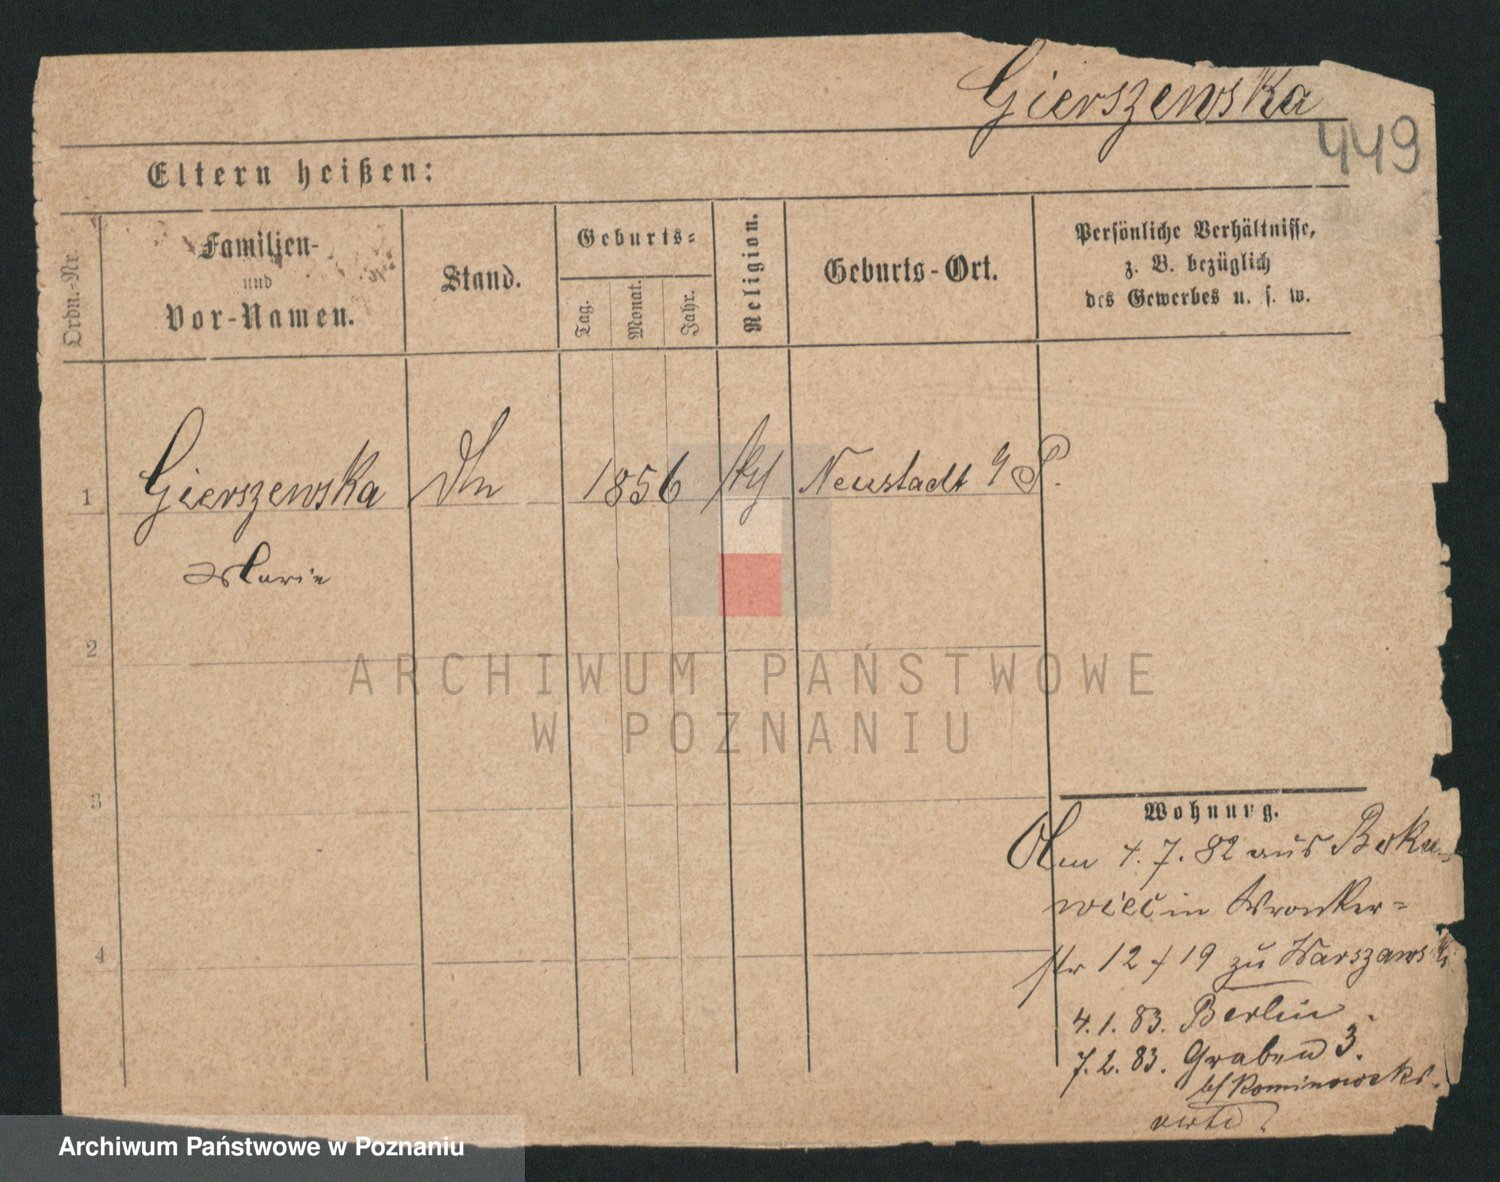 Gierszewska
449
Eltern heißen:
Ordn.-Nr.
Familien-
und
Vor-Namen.
Stand.
Geburts-
Tag.
Monat.
Jahr.
Religion.
Geburts-Ort.
Persönliche Verhältnisse,
z. B. bezüglich
des Gewerbes u. s. w.
1
Gierszewska
1856
Neustadt
Marie
2
3
4
Wohnung.
4. 7. 82 aus
in Wronker-
str 12 19 zu Warszawski
4. 1. 83. Berlin
7. 2. 83. Graben 3.
ARCHIWUM PAŃSTWOWE
W POZNANIU
Archiwum Państwowe w Poznaniu